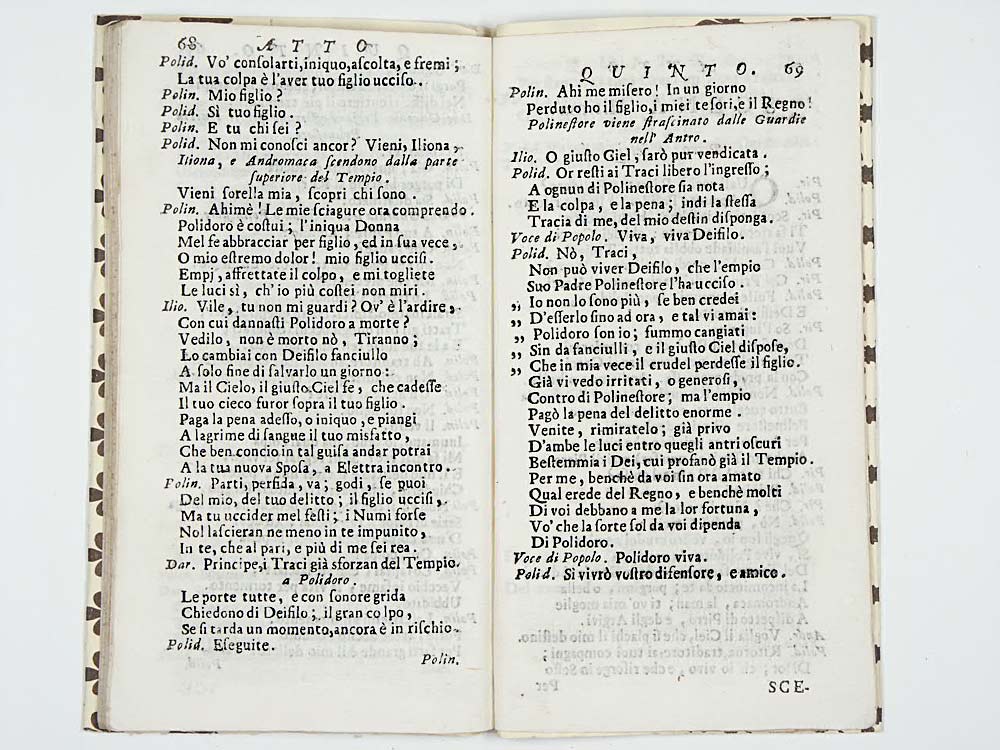 68 ATTO
Polid. Vo' conſolarti, iniquo, aſcolta, e fremi;
La tua colpa è l'aver tuo figlio ucciſo.
Polin. Mio figlio?
Polid. Sì tuo figlio.
Polin. E tu chi ſei?
Polid. Non mi conoſci ancor? Vieni, Iliona,
Iliona, e Andromaca ſcendono dalla parte
ſuperiore del Tempio.
Vieni ſorella mia, ſcopri chi ſono.
Polin. Ahimè! Le mie ſciagure ora comprendo.
Polidoro è coſtui; l'iniqua Donna
Mel fe abbracciar per figlio, ed in ſua vece,
O mio eſtremo dolor! mio figlio ucciſi.
Empj, affrettate il colpo, e mi togliete
Le luci sì, ch'io più coſtei non miri.
Ilio. Vile, tu non mi guardi? Ov' è l'ardire,
Con cui dannaſti Polidoro a morte?
Vedilo, non è morto nò, Tiranno;
Lo cambiai con Deifilo fanciullo
A ſolo fine di ſalvarlo un giorno:
Ma il Cielo, il giuſto Ciel fe, che cadeſſe
Il tuo cieco furor ſopra il tuo figlio.
Paga la pena adeſſo, o iniquo, e piangi
A lagrime di ſangue il tuo misfatto,
Che ben concio in tal guiſa andar potrai
A la tua nuova Spoſa, a Elettra incontro.
Polin. Parti, perfida, va; godi, ſe puoi
Del mio, del tuo delitto; il figlio ucciſi,
Ma tu uccider mel feſti; i Numi forſe
Nol laſcieran ne meno in te impunito,
In te, che al pari, e più di me ſei rea.
Dar. Principe, i Traci già sforzan del Tempio
a Polidoro.
Le porte tutte, e con ſonore grida
Chiedono di Deifilo; il gran colpo,
Se ſi tarda un momento, ancora è in riſchio.
Polid. Eſeguite.
Polin.
QUINTO. 69
Polin. Ahi me miſero! In un giorno
Perduto ho il figlio, i miei teſori, e il Regno!
Polineſtore viene ſtraſcinato dalle Guardie
nell' Antro.
Ilio. O giuſto Ciel, ſarò pur vendicata.
Polid. Or reſti ai Traci libero l'ingreſſo;
A ognun di Polineſtore ſia nota
E la colpa, e la pena; indi la ſteſſa
Tracia di me, del mio deſtin diſponga.
Voce di Popolo. Viva, viva Deifilo.
Polid. Nò, Traci,
Non può viver Deifilo, che l'empio
Suo Padre Polineſtore l'ha ucciſo.
„ Io non lo ſono più, ſe ben credei
„ D'eſſerlo ſino ad ora, e tal vi amai:
„ Polidoro ſon io; ſummo cangiati
„ Sin da fanciulli, e il giuſto Ciel diſpoſe,
„ Che in mia vece il crudel perdeſſe il figlio.
Già vi vedo irritati, o generoſi,
Contro di Polineſtore; ma l'empio
Pagò la pena del delitto enorme.
Venite, rimiratelo; già privo
D'ambe le luci entro quegli antri oſcuri
Beſtemmia i Dei, cui profanò già il Tempio.
Per me, benchè da voi ſin ora amato
Qual erede del Regno, e benchè molti
Di voi debbano a me la lor fortuna,
Vo' che la ſorte ſol da voi dipenda
Di Polidoro.
Voce di Popolo. Polidoro viva.
Polid. Sì vivrò voſtro difenſore, e amico.
SCE-